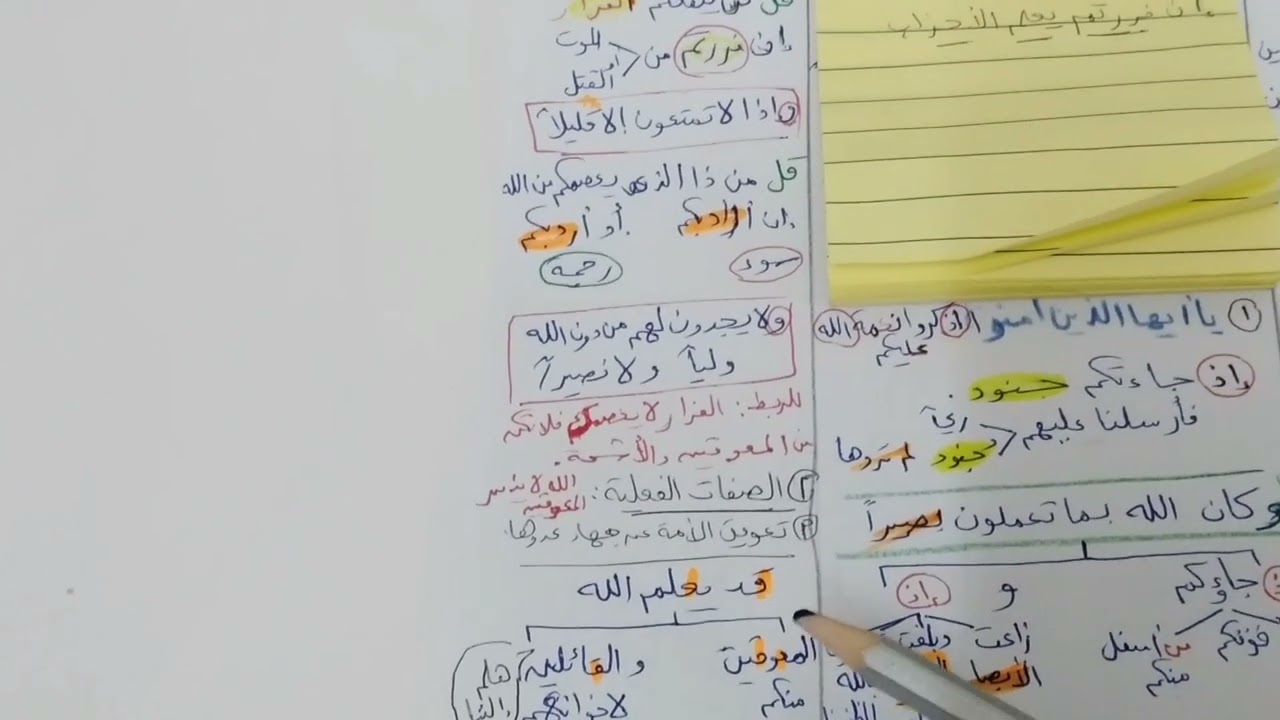 إن فررتم يعلم الأحزاب
١ يا أيها الذين آمنوا اذكروا نعمة الله
عليكم
إذ جاءتكم جنود
فأرسلنا عليهم ريحاً
وجنود لم تروها
وكان الله بما تعملون بصيراً
جاؤكم و إذ
فوقكم من أسفل منكم زاغت الأبصار وبلغت
قل لن ينفعكم الفرار
إن فررتم من الموت
أو القتل
وإذا لا تمتعون إلا قليلاً
قل من ذا الذي يعصمكم من الله
إن أراد بكم أو أراد بكم
سوء رحمة
ولا يجدون لهم من دون الله
ولياً ولا نصيراً
للربط: الفرار لا يعصمك فلا تكن
من المعوقين والأشحة.
٢ الصفات الفعلية:
٣ تعويق الأمة عن جهاد عدوها.
قد يعلم الله
المعوقين والقائلين هلم
منكم لإخوانهم إلينا